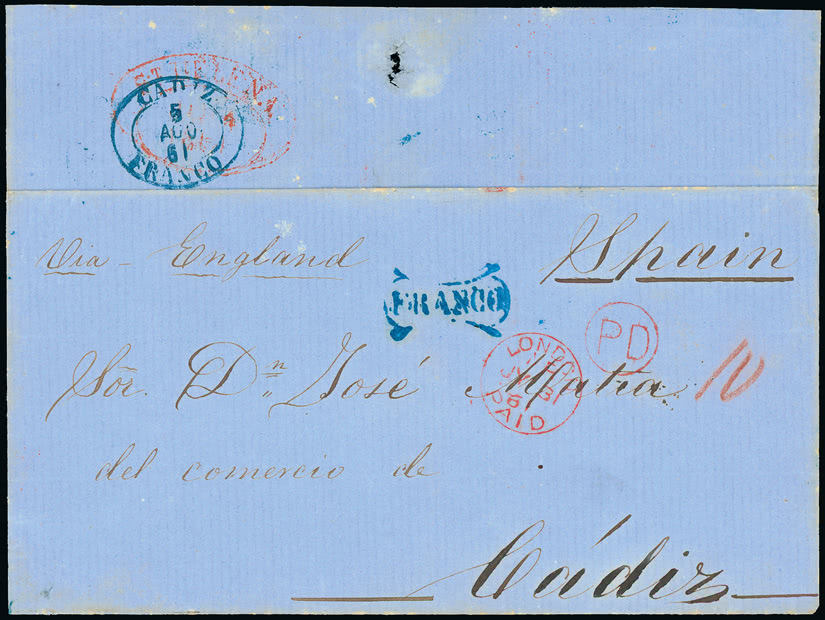 ST HELENA
CADIZ
5
AGO
61
FRANCO
Via - England
Spain
FRANCO
PD
LONDON
JY 31
61
PAID
Sõr. Dn José Matia
del comercio de
Cádiz